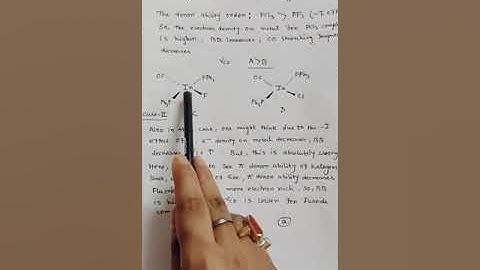 The donor ability order: PCl3 > PF3 (-I eff
So, the electron density on metal for PCl3 compl
is higher, BB increases, CO stretching freque
decreases
νCO A>B
OC PPh3 OC PPh3
Ir Ir
Ph3P F Ph3P Cl
C D
Case-II
Also in this case, one might think due to the -I
effect of F, e- density on metal decreases, BB
decrease C < D But, this is absolutely wrong
Here, to see π donor ability of halogens
Since, of size, π donor ability decreases
Fluoride more electron rich, so, BB
is hi νCO is lower for fluoride
com
2